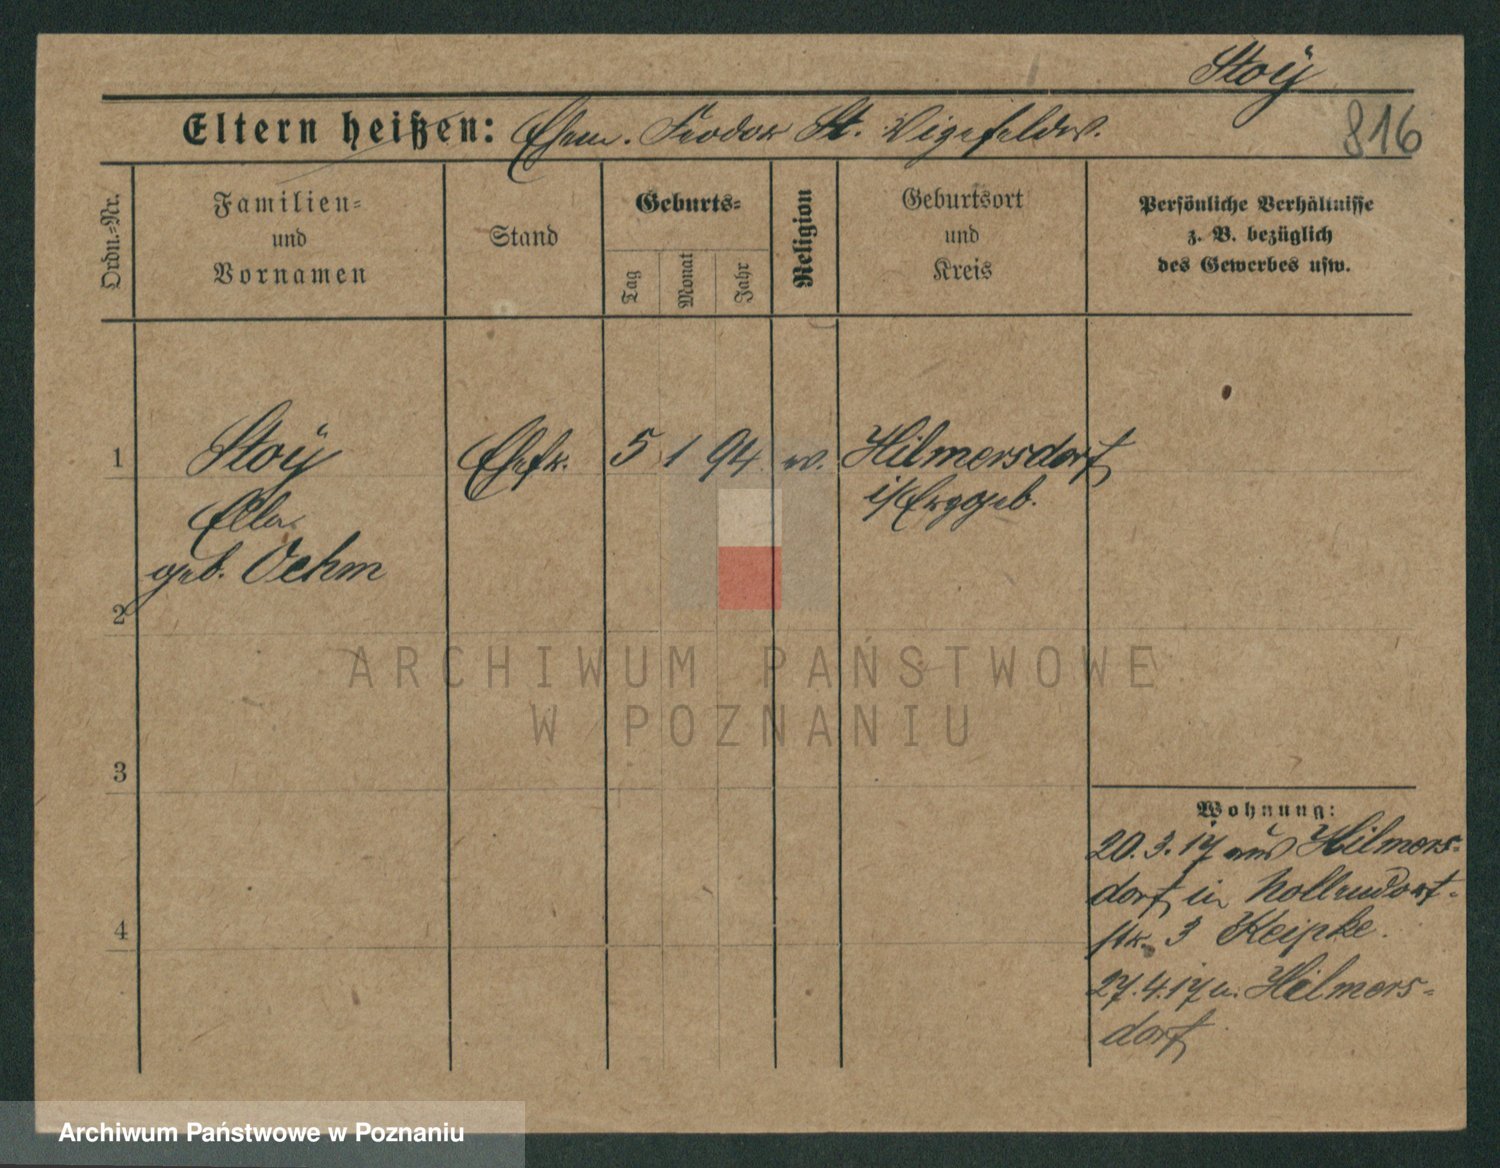 Stoÿ
816
Eltern heißen: Ehem. Teodor St. Vizefeldw.
Ordn.-Nr.
Familien-
und
Vornamen
Stand
Geburts-
Tag
Monat
Jahr
Religion
Geburtsort
und
Kreis
Persönliche Verhältnisse
z. B. bezüglich
des Gewerbes usw.
1 Stoÿ Ehefr. 5 1 94 ev. Hilmersdorf
Ella i/Erzgeb.
geb. Oehm
2
3
4
Wohnung:
20.3.17 aus Hilmers-
dorf in Nollendorf-
str. 3 Keipke.
27.4.17 n. Hilmers-
dorf
ARCHIWUM PAŃSTWOWE
W POZNANIU
Archiwum Państwowe w Poznaniu